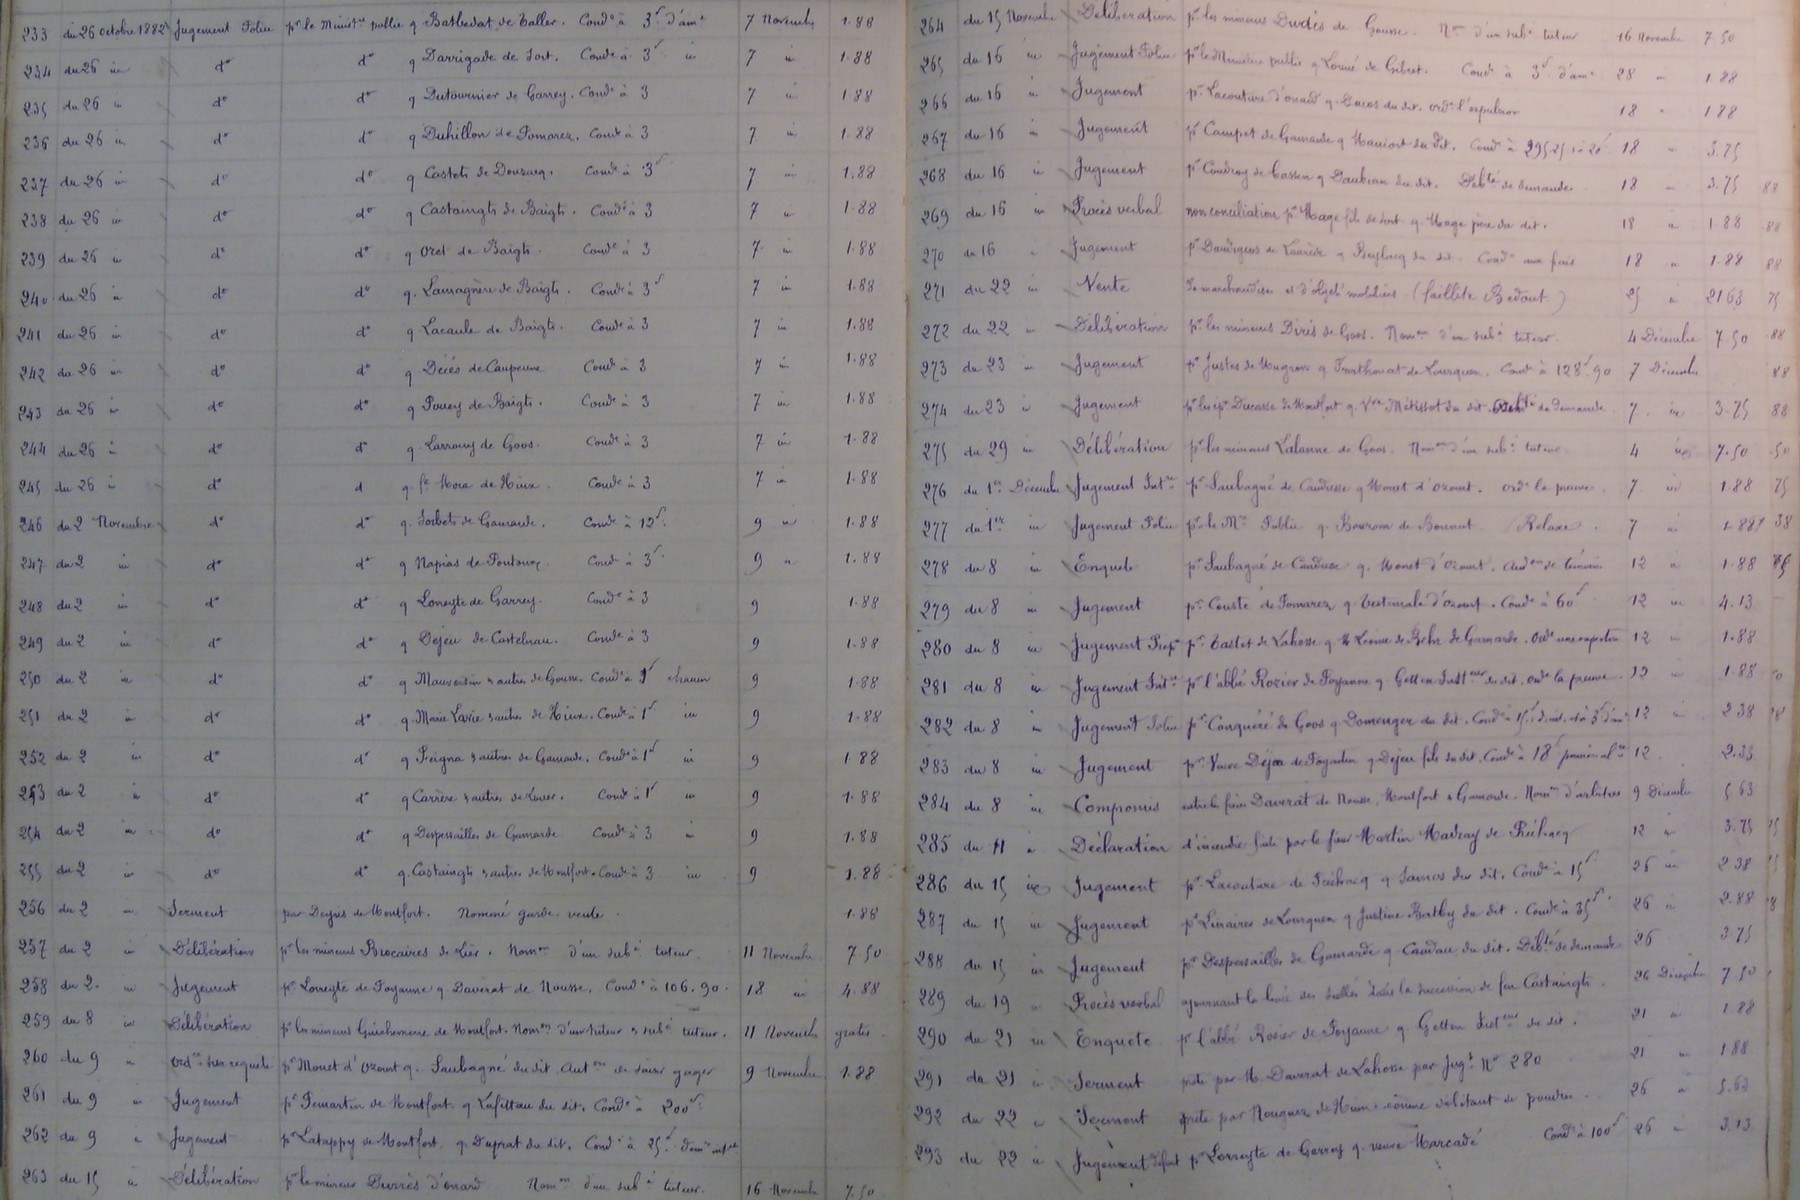 233 du 26 octobre 1882 Jugement Police pr le Ministre public q Barbedat de Taller. Condé à 3f d'ame 7 Novembre 1.88
234 du 26 in do do q Darrigade de Sort. Condé à 3f in 7 in 1.88
235 du 26 in do do q Dutournier de Garrey. Condé à 3 7 in 1.88
236 du 26 in do do q Duhillon de Pomarez. Condé à 3 7 in 1.88
237 du 26 in do do q Castets de Donzacq. Condé à 3f 7 in 1.88
238 du 26 in do do q Castaingts de Baigts. Condé à 3 7 in 1.88
239 du 26 in do do q Oret de Baigts. Condé à 3 7 in 1.88
240 du 26 in do do q. Lamagnère de Baigts. Condé à 3f 7 in 1.88
241 du 26 in do do q Lacaule de Baigts. Condé à 3 7 in 1.88
242 du 26 in do do q Déiés de Caupenne Condé à 3 7 in 1.88
243 du 26 in do do q Pouey de Baigts. Condé à 3 7 in 1.88
244 du 26 in do do q. Larrouy de Goos. Condé à 3 7 in 1.88
245 du 26 in do d q. fe Mora de Hinx. Condé à 3 7 in 1.88
246 du 2 Novembre do do q. Sorbets de Gamarde. Condé à 12f. 9 in 1.88
247 du 2 in do do q Napias de Pontonx. Condé à 3f. 9 in 1.88
248 du 2 in do do q Loreyte de Garrey. Condé à 3 9 1.88
249 du 2 in do do q Dejeu de Castelnau. Condé à 3 9 1.88
250 du 2 in do do q Mauvoisin & autres de Gousse. Condé à 1f chacun 9 1.88
251 du 2 in do do q. Marie Lavie & autres de Hinx. Condé à 1f in 9 1.88
252 du 2 in do do q Peigna & autres de Gamarde. Condé à 1f in 9 1.88
253 du 2 in do do q Carrère & autres de Louer. Condé à 1f in 9 1.88
254 du 2 in do do q Despessailles de Gamarde Condé à 3 in 9 1.88
255 du 2 in do do q. Castaingts & autres de Montfort. Condé à 3 in 9 1.88
256 du 2 in Serment par Deyris de Montfort. Nommé garde vente. 1.88
257 du 2 in Délibération pr les mineurs Brocaires de Lier. Nomon d'un subé tuteur. 11 Novembre 7.50
258 du 2. in Jugement pr. Loreyte de Poyanne q Daverat de Nousse. Condé à 106.90. 18 in 4.88
259 du 8 in Délibération pr les mineurs Guichemerre de Montfort. Nomon d'un tuteur & subé tuteur. 11 Novembre gratis
260 du 9 in ordce sur requête pr Monet d'Ozourt q. Saubagné du dit Auton de saisir gager 9 Novembre 1.88
261 du 9 in Jugement pr Pemartin de Montfort q Lafittau du dit. Condé à 200f.
262 du 9 in Jugement pr Latappy de Montfort q. Duprat du dit. Condé à 25f.
263 du 15 in Délibération pr le mineur Durrès d'onard Nomon d'un subé tuteur. 16 Novembre 7.50
264 du 15 Novembre Délibération pr les mineurs Durdès de Gousse. Non d'un subé tuteur 16 Novembre 7.50
265 du 16 in Jugement Police pr le Ministère public q Lonné de Gibret. Condé à 3f d'ame 28 in 1.88
266 du 16 in Jugement pr. Lacouture d'onard q. Ducos du dit. ordt l'expulsion 18 in 1.88
267 du 16 in Jugement pr Campet de Gamarde q Mauriort du dit. Condé à 295.25 18 in 3.75
268 du 16 in Jugement pr Coudroy de Cassen q Daubian du dit. Débté de demande 18 in 3.75
269 du 16 in Procès verbal non conciliation pr Mage fils de Sort q. Mage père du dit. 18 in 1.88
270 du 16 in Jugement pr Dourques de Laurède q Beylacq du dit. Condé aux frais 18 in 1.88
271 du 22 in Vente de marchandises et d'objets mobiliers (faillite Bedout) 25 in 2163
272 du 22 in Délibération pr les mineurs Diris de Goos. Nomon d'un subé tuteur. 4 Décembre 7.50
273 du 23 in Jugement pr Justes de Mugron q Fourthouat de Lourquen. Condé à 128f.90 7 Décembre
274 du 23 in Jugement pr les épx Ducasse de Montfort q. Vve Métissot du dit. Débté de demande. 7. in 3.75
275 du 29 in Délibération pr les mineurs Lalanne de Goos. Nomon d'un subé tuteur. 4 in 7.50
276 du 1er Décembre Jugement Intre pr Saubagné de Candresse q Monet d'Ozourt. ordt la preuve. 7 in 1.88
277 du 1er in Jugement Police pr le Mre Public q. Bourom de Bonnut. Relaxe. 7 in 1.88
278 du 8 in Enquête pr Saubagné de Candresse q. Monet d'Ozourt. Audon de témoins 12 in 1.88
279 du 8 in Jugement pr Cousté de Pomarez q Testemale d'Ozourt. Condé à 60f 12 in 4.13
280 du 8 in Jugement Prepre pr. Tastet de Lahosse q M Léonie de Behr de Gamarde. ordt une expertise 12 in 1.88
281 du 8 in Jugement Intre pr l'abbé Rozier de Poyanne q. Getten Instteur du dit. ordt la preuve. 12 in 1.88
282 du 8 in Jugement Police pr Conquéré de Goos q Domenger du dit. Condé à 15f. d.int. et à 3f d'am 12 in 2.38
283 du 8 in Jugement pr. Veuve Dejea de Poyartin q Dejeu fils du dit. Condé à 18f pension alre 12 2.33
284 du 8 in Compromis entre les frères Daverat de Nousse, Montfort & Gamarde. Nomon d'arbitres 9 Décembre 5.63
285 du 11 in Déclaration d'incendie faite par le sieur Martin Madray de Préchacq 12 in 3.75
286 du 15 in Jugement pr. Lacouture de Préchacq q Lamos du dit. Condé à 15f 26 in 2.38
287 du 15 in Jugement pr Linaires de Lourquen q Justine Bathy du dit. Condé à 35f. 26 in 2.88
288 du 15 in Jugement pr Despessailles de Gamarde q Candau du dit. Débté de demande 26 3.75
289 du 19 in Procès verbal ajournant la levée des scellés dans la succession de feu Castaingts. 26 Décembre 7.50
290 du 21 in Enquête pr l'abbé Rosier de Poyanne q. Getten Instteur du dit. 21 in 1.88
291 du 21 in Serment prêté par M. Daverat de Lahosse par Jugt No 280 21 in 1.88
292 du 22 in Serment prêté par Nouguez de Hinx comme débitant de poudres. 26 in 5.62
293 du 22 in Jugement défaut pr Lorreyte de Garrey q. veuve Marcadé Condé à 100f 26 in 3.13